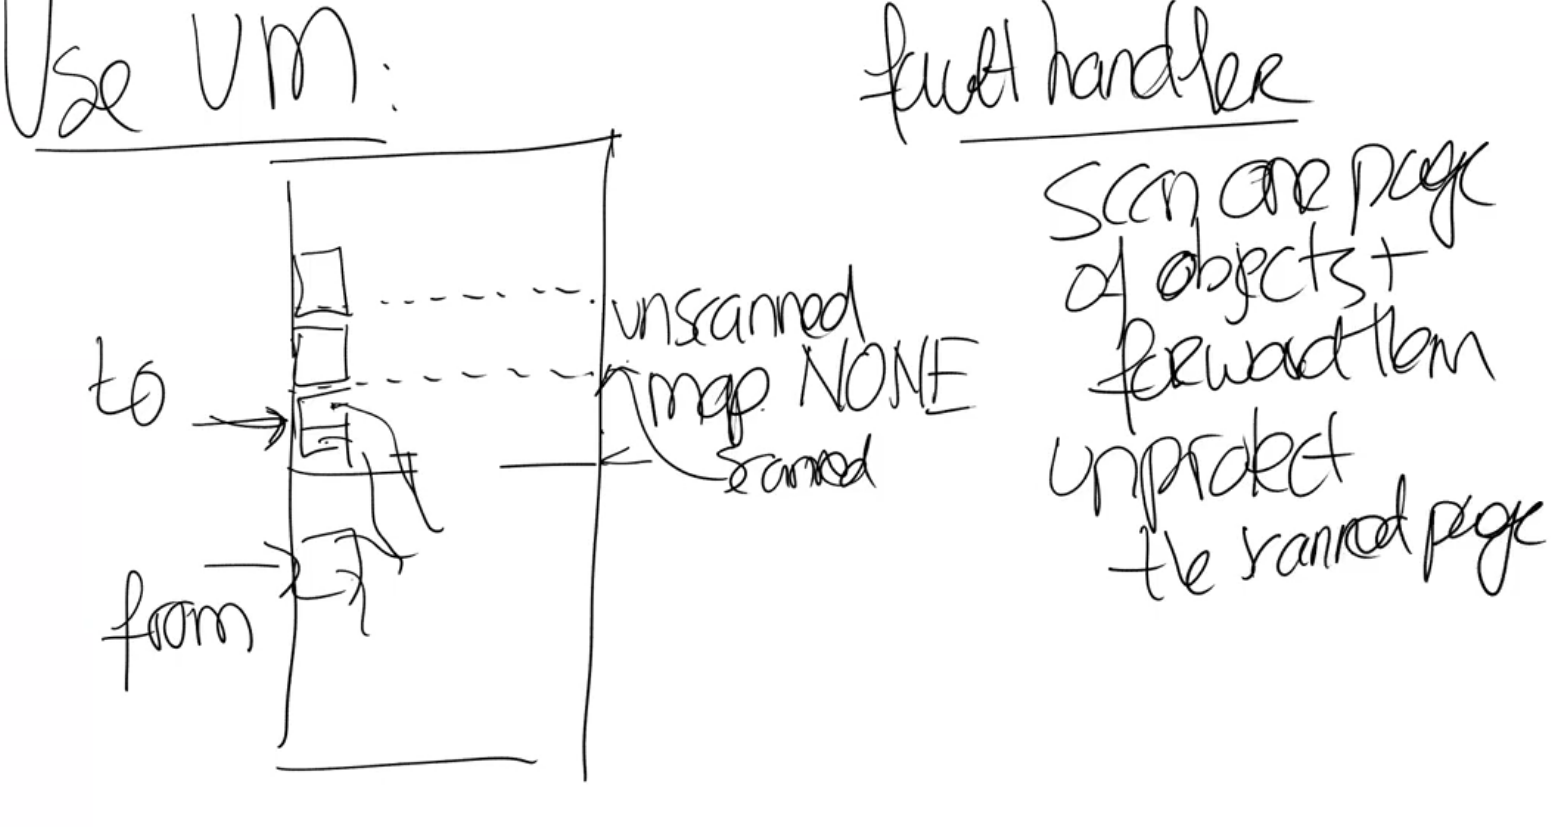 Use VM:
to
from
unscanned
map NONE
scanned
fault handler
scan one page
of objects +
forward them
unprotect
the scanned page